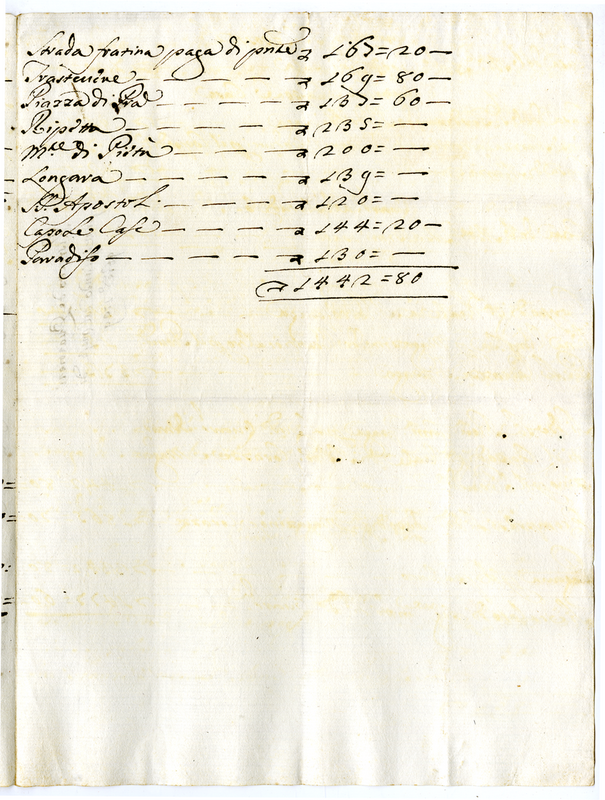 Strada fratina paga di pnte ∇ 167=20—
Trastevere — — — — ∇ 169=80—
Piazza di Pra — — — — ∇ 137=60—
Ripetta — — — — — ∇ 235=—
Mte di Pietà — — — — ∇ 200=—
Longara — — — — — ∇ 139=—
SS. Apostoli — — — — ∇ 120=—
Capo le Case — — — — ∇ 144=20—
Paradiso — — — — — ∇ 130=—
∇ 1442=80